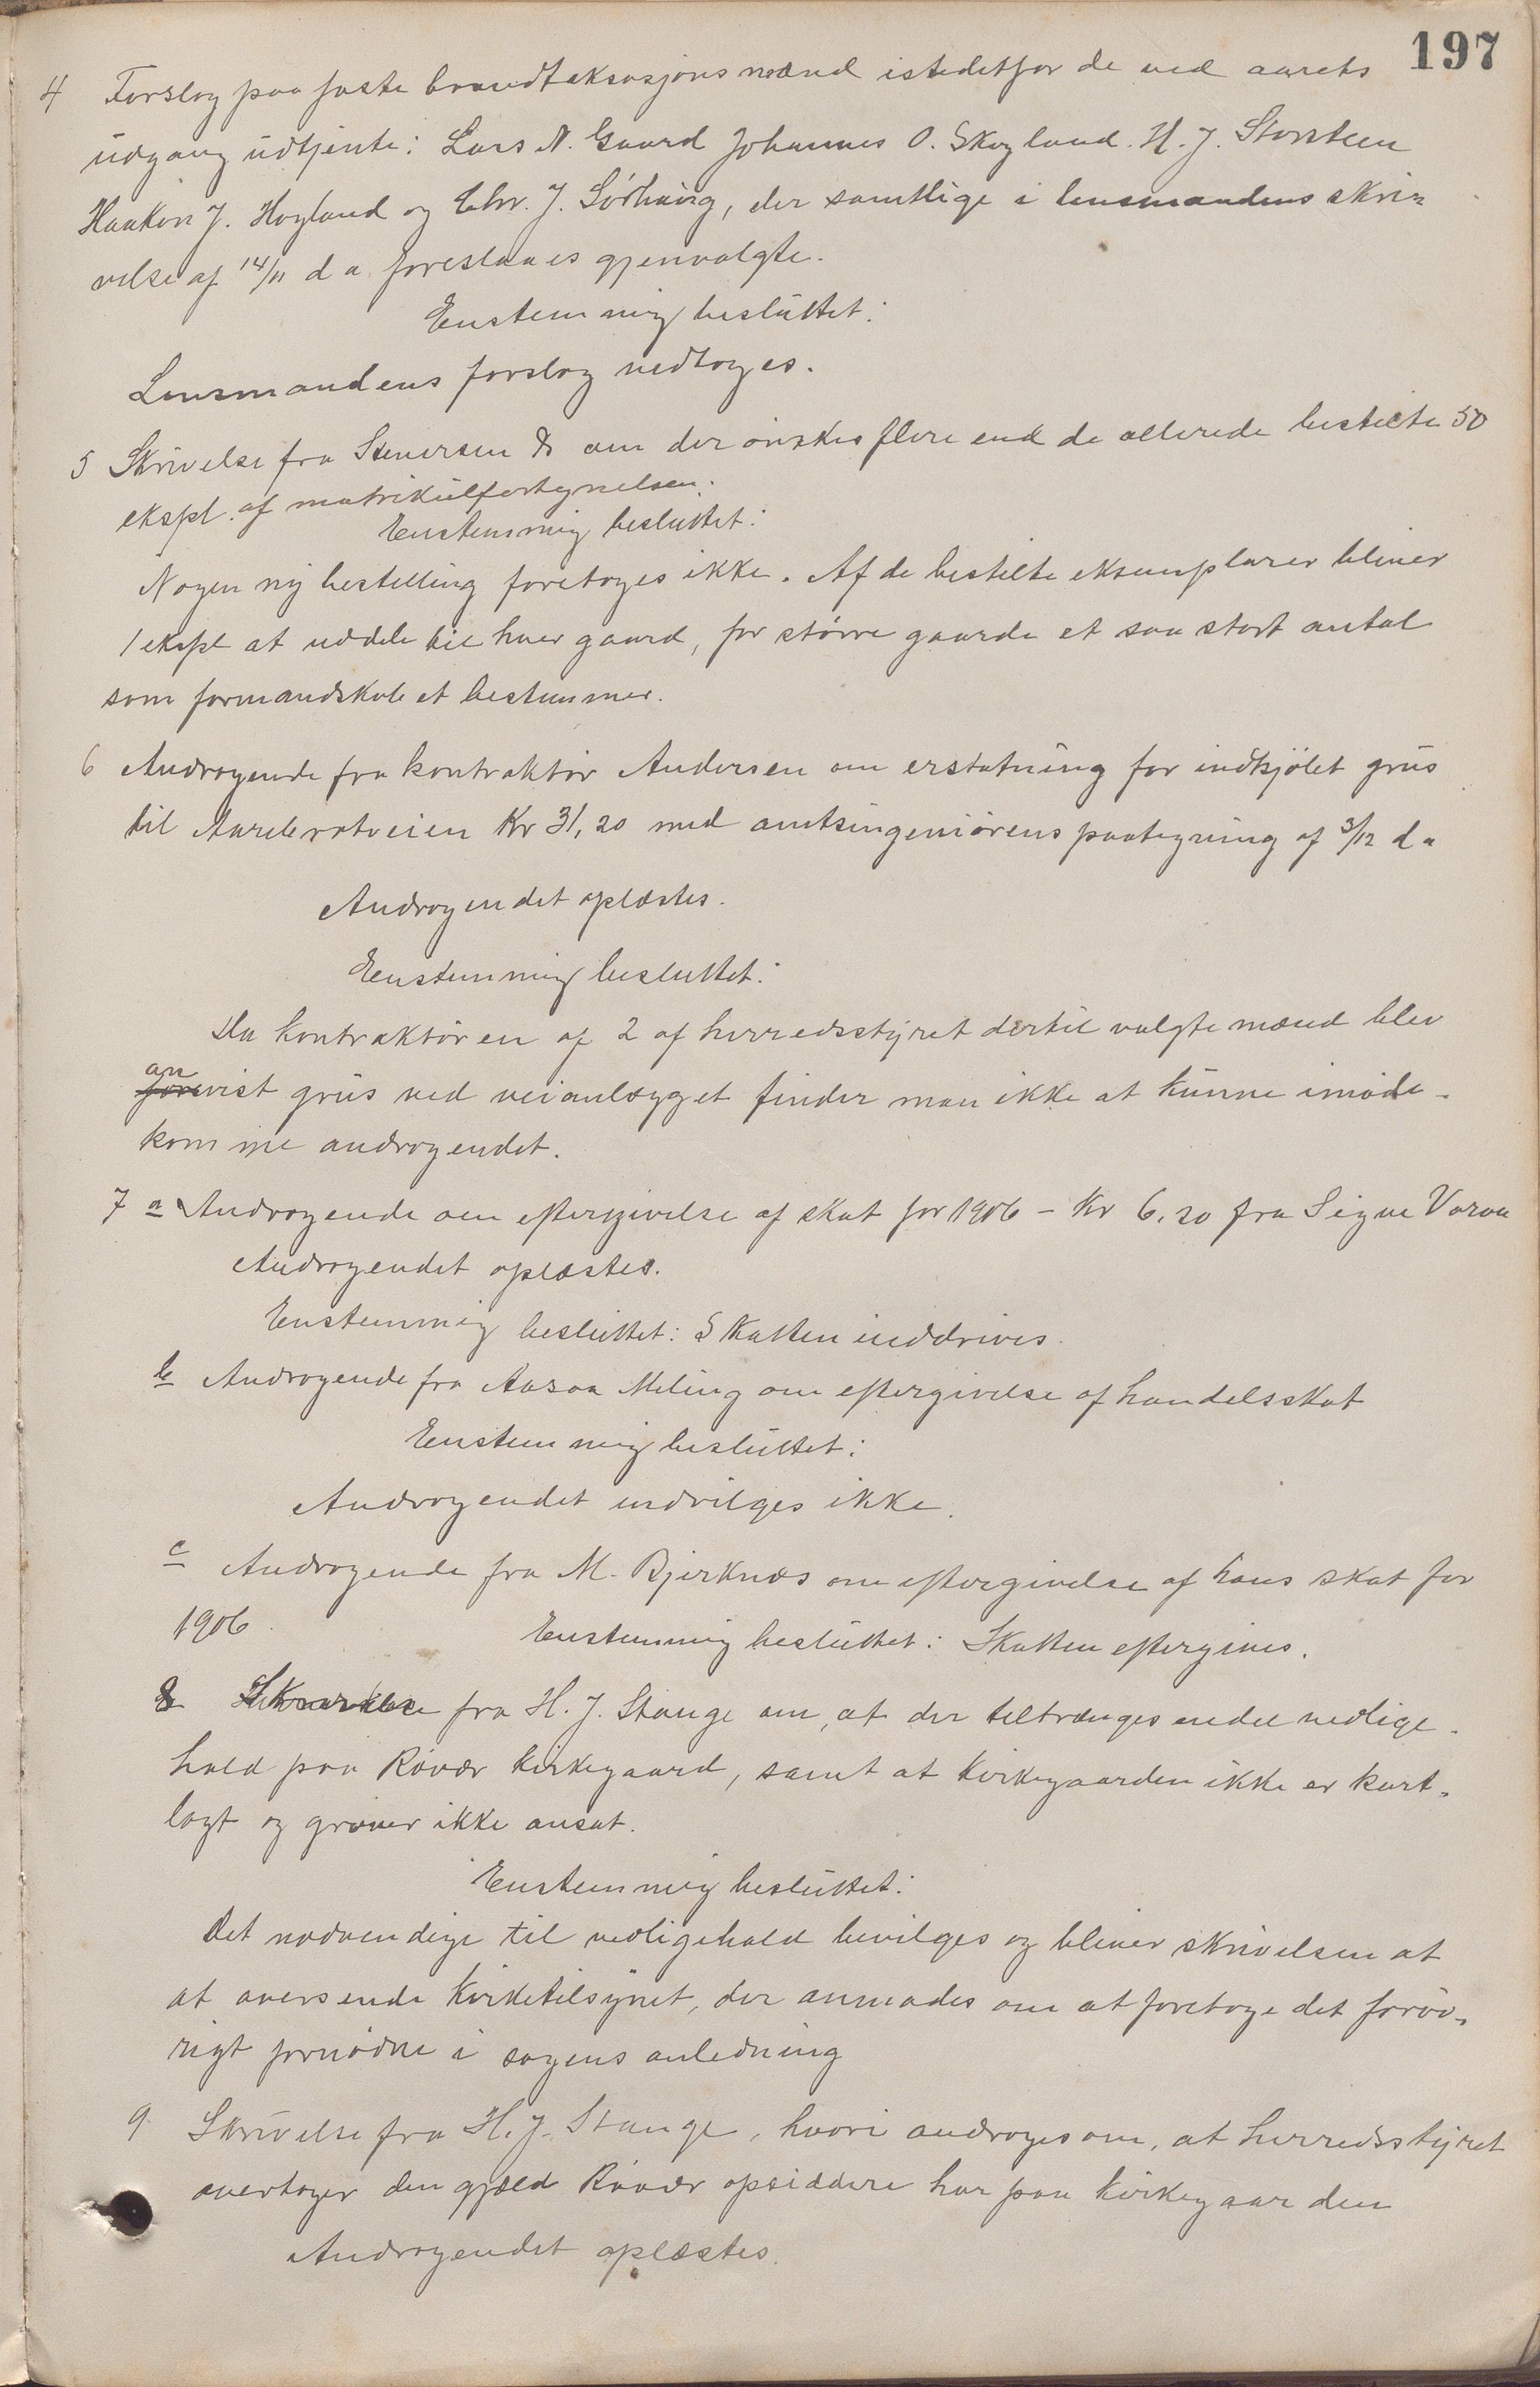 197
4 Forslag paa faste brandtaksasjonsmænd istedetfor de ved aarets
udgang udtjente: Lars N. Gaard Johannes O. Skogland. H. J. Storsteen
Haakon J. Hogland og Chr. J. Sørhaug, der samtlige i lensmandens skri-
velse af 14/11 d a foreslaaes gjenvalgte.
Enstemmig besluttet:
Lensmandens forslag vedtoges.
5 Skrivelse fra Stenersen & om der ønskes flere end de allerede bestilte 50
ekspl. af matrikulfortegnelsen.
Enstemmig besluttet:
Nogen ny bestelling foretoges ikke. Af de bestilte eksemplarer bliver
1 ekspl at uddele til hver gaard, for større gaarde et saa stort antal
som formandskabet bestemmer.
6 Andragende fra kontraktør Andersen om erstatning for indkjøbt grus
til Aarebrotveien Kr 31,20 med amtsingeniørens paategning af 3/12 d a
Andragendet oplæstes.
Enstemmig besluttet:
Da kontraktøren af 2 af herredsstyret dertil valgte mænd blev
an
forevist grus ved veianlægget finder man ikke at kunne imøde-
komme andragendet.
7 a Andragende om eftergivelse af skat for 1906 – Kr 6,20 fra Signe Voraa
Andragendet oplæstes.
Enstemmig besluttet: Skatten inddrives.
b Andragende fra Aasaa Meling om eftergivelse af handelsskat
Enstemmig besluttet:
Andragendet indvilges ikke.
c Andragende fra M. Bjerknes om eftergivelse af hans skat for
1906. Enstemmig besluttet: Skatten eftergives.
8 Skrivelse fra H. J. Stange om, at der tiltrænges endel vedlige-
hold paa Røvær kirkegaard, samt at kirkegaarden ikke er kart-
lagt og graver ikke ansat.
Enstemmig besluttet:
Det nødvendige til vedligehold bevilges og bliver skrivelsen at
at oversende kirketilsynet, der anmodes om at foretage det forøv-
rigt fornødne i sagens anledning
9 Skrivelse fra H. J. Stange, hvori androges om, at herredsstyret
overtager den gjæld Røvær opsiddere har paa kirkegaarden
Andragendet oplæstes.